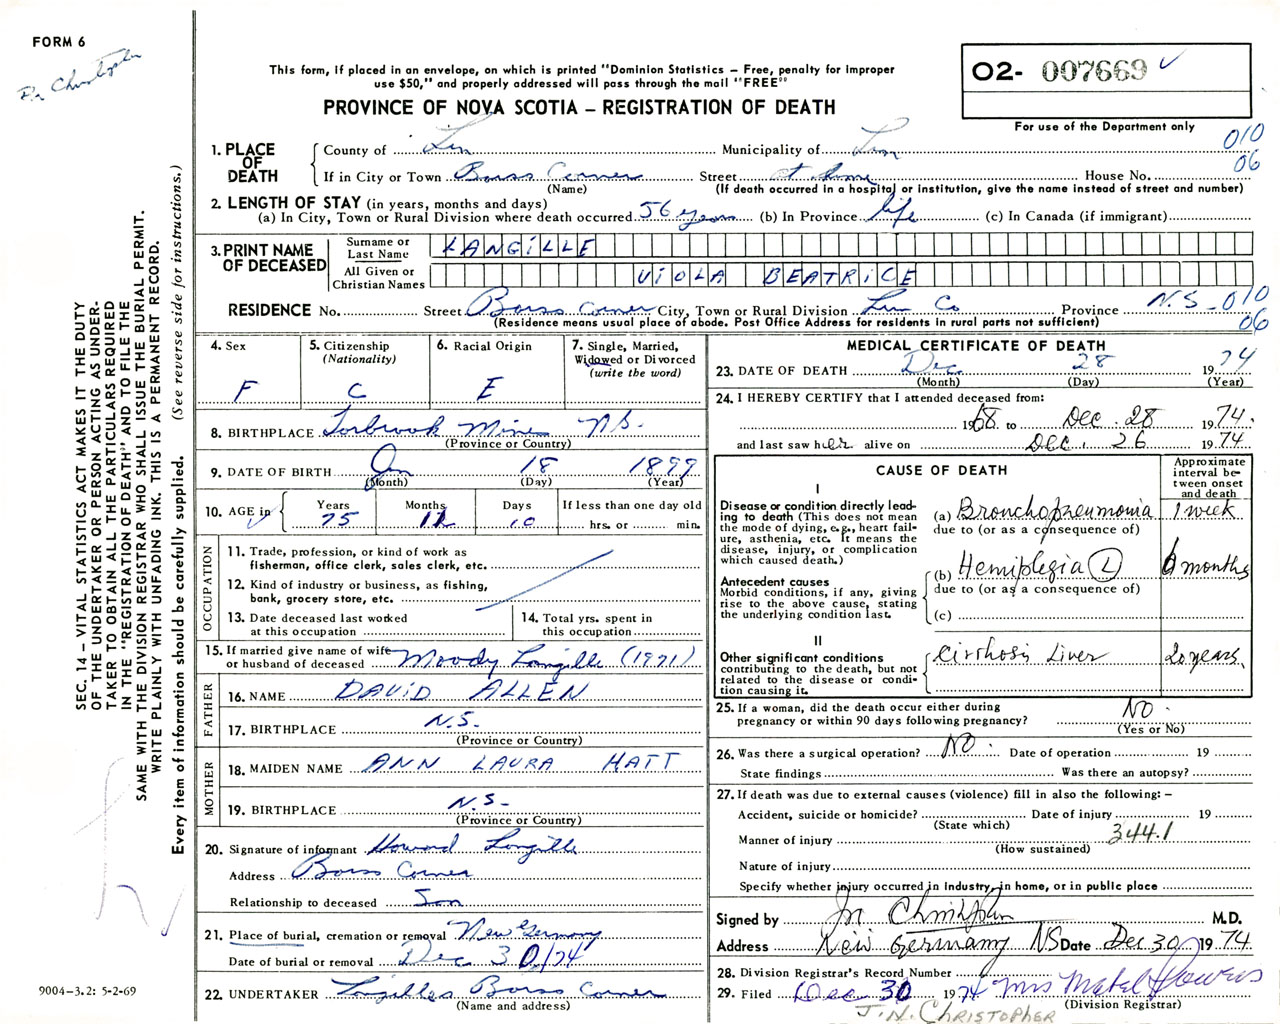 FORM 6
Dr Christopher
This form, if placed in an envelope, on which is printed "Dominion Statistics – Free, penalty for improper
use $50," and properly addressed will pass through the mail "FREE"
PROVINCE OF NOVA SCOTIA – REGISTRATION OF DEATH
O2- 007669
For use of the Department only
SEC. 14 – VITAL STATISTICS ACT MAKES IT THE DUTY
OF THE UNDERTAKER OR PERSON ACTING AS UNDER-
TAKER TO OBTAIN ALL THE PARTICULARS REQUIRED
IN THE "REGISTRATION OF DEATH" AND TO FILE THE
SAME WITH THE DIVISION REGISTRAR WHO SHALL ISSUE THE BURIAL PERMIT.
WRITE PLAINLY WITH UNFADING INK. THIS IS A PERMANENT RECORD.
Every item of information should be carefully supplied. (See reverse side for instructions.)
1. PLACE OF DEATH
County of Lun Municipality of Lun 010
If in City or Town Barss Corner Street at home House No. 06
(Name) (If death occurred in a hospital or institution, give the name instead of street and number)
2. LENGTH OF STAY (in years, months and days)
(a) In City, Town or Rural Division where death occurred 56 years (b) In Province life (c) In Canada (if immigrant)
3. PRINT NAME OF DECEASED
Surname or Last Name LANGILLE
All Given or Christian Names VIOLA BEATRICE
RESIDENCE No. Street Barss Corner City, Town or Rural Division Lun Co Province N.S. 010
(Residence means usual place of abode. Post Office Address for residents in rural parts not sufficient) 06
4. Sex F
5. Citizenship (Nationality) C
6. Racial Origin E
7. Single, Married, Widowed or Divorced (write the word)
8. BIRTHPLACE Torbrook Mines NS.
(Province or Country)
9. DATE OF BIRTH Jan 18 1899
(Month) (Day) (Year)
10. AGE in Years 75 Months 11 Days 10 If less than one day old hrs. or min.
OCCUPATION
11. Trade, profession, or kind of work as
fisherman, office clerk, sales clerk, etc.
12. Kind of industry or business, as fishing,
bank, grocery store, etc.
13. Date deceased last worked
at this occupation
14. Total yrs. spent in
this occupation
15. If married give name of wife
or husband of deceased Moody Langille (1971)
FATHER
16. NAME DAVID ALLEN
17. BIRTHPLACE N.S.
(Province or Country)
MOTHER
18. MAIDEN NAME ANN LAURA HATT
19. BIRTHPLACE N.S.
(Province or Country)
20. Signature of informant Howard Langille
Address Barss Corner
Relationship to deceased Son
21. Place of burial, cremation or removal New Germany
Date of burial or removal Dec 30/74
22. UNDERTAKER Langilles Barss Corner
(Name and address)
MEDICAL CERTIFICATE OF DEATH
23. DATE OF DEATH Dec 28 1974
(Month) (Day) (Year)
24. I HEREBY CERTIFY that I attended deceased from:
1968 to Dec. 28 1974.
and last saw her alive on Dec. 26 1974
CAUSE OF DEATH
Approximate interval between onset and death
I
Disease or condition directly lead-
ing to death (This does not mean
the mode of dying, e.g., heart fail-
ure, asthenia, etc. It means the
disease, injury, or complication
which caused death.)
(a) Bronchopneumonia 1 week
due to (or as a consequence of)
Antecedent causes
Morbid conditions, if any, giving
rise to the above cause, stating
the underlying condition last.
(b) Hemiplegia (L) 6 months
due to (or as a consequence of)
(c)
II
Other significant conditions
contributing to the death, but not
related to the disease or condi-
tion causing it.
Cirrhosis Liver 20 years
25. If a woman, did the death occur either during
pregnancy or within 90 days following pregnancy? NO.
(Yes or No)
26. Was there a surgical operation? NO. Date of operation 19
State findings Was there an autopsy?
27. If death was due to external causes (violence) fill in also the following: –
Accident, suicide or homicide? Date of injury 19
(State which)
Manner of injury 344.1
(How sustained)
Nature of injury
Specify whether injury occurred in industry, in home, or in public place
Signed by J N Christopher M.D.
Address New Germany NS Date Dec 30 1974
28. Division Registrar's Record Number
29. Filed Dec 30 1974 Mrs Mabel
(Division Registrar)
J.N. CHRISTOPHER
9004–3.2: 5-2-69